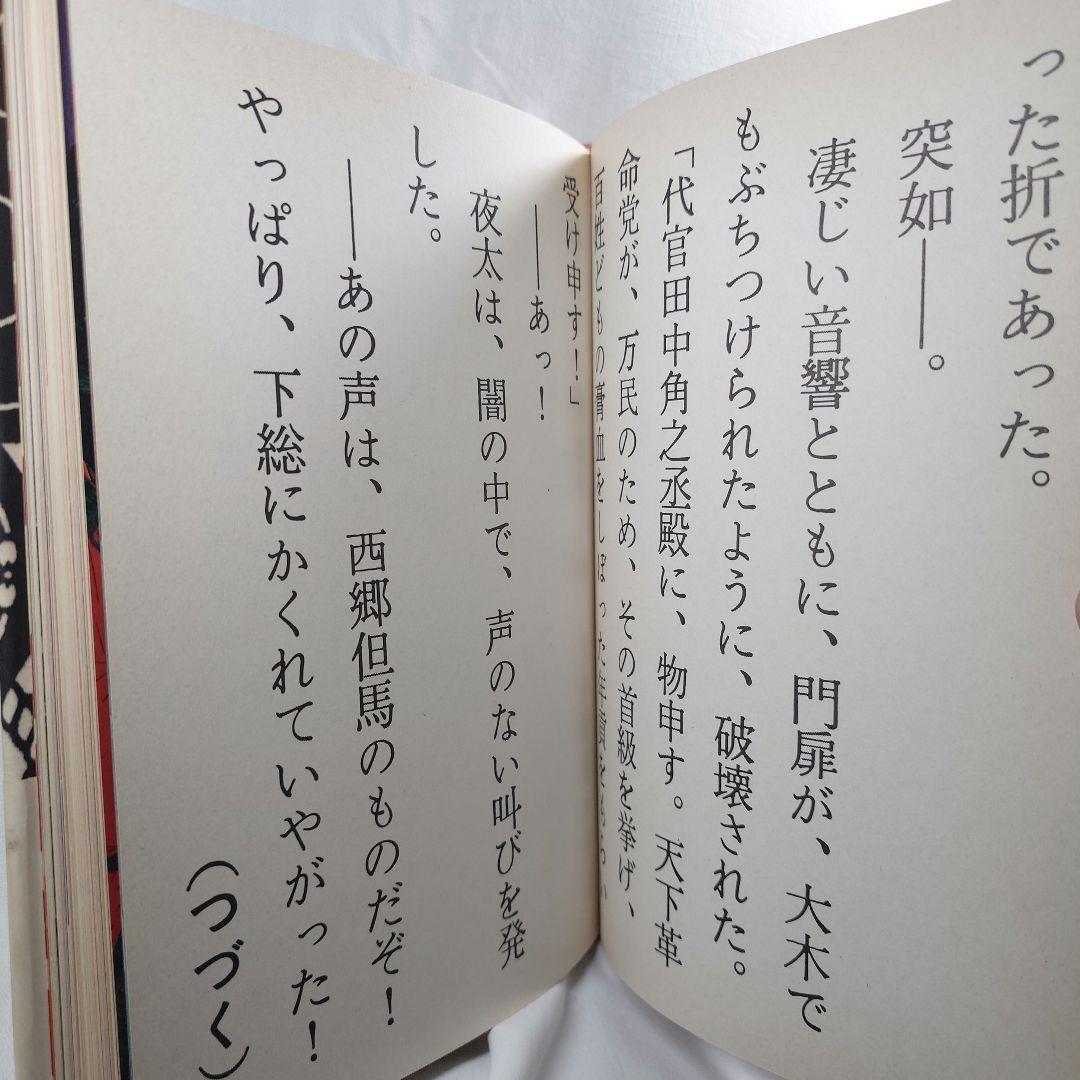 った折であった。
突如――。
凄じい音響とともに、門扉が、大木で
もぶちつけられたように、破壊された。
「代官田中角之丞殿に、物申す。天下革
命党が、万民のため、その首級を挙げ、
百姓どもの膏血をしぼった年貢を
受け申す！」
――あっ！
夜太は、闇の中で、声のない叫びを発
した。
――あの声は、西郷但馬のものだぞ！
やっぱり、下総にかくれていやがった！
（つづく）